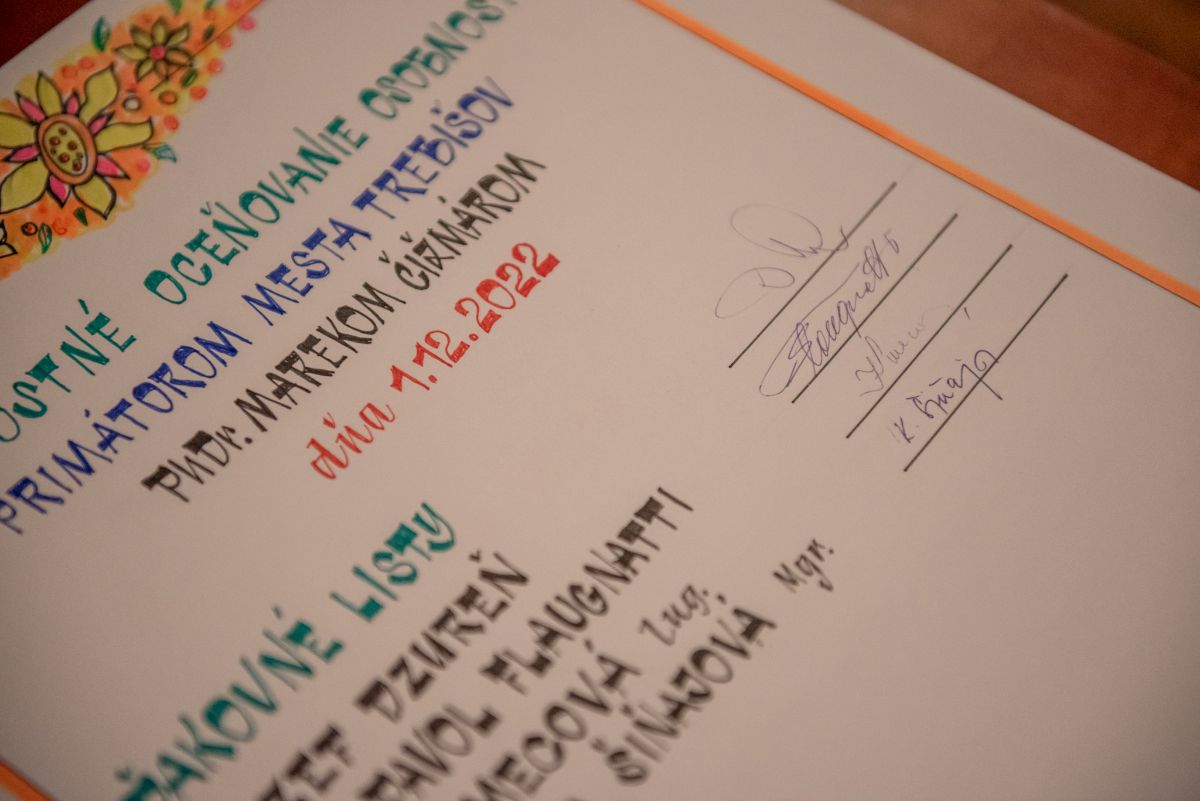 OSTNÉ OCEŇOVANIE OSOBNOST
PRIMÁTOROM MESTA TREBIŠOV
PhDr. MAREKOM ČIŽMÁROM
dňa 1.12.2022
ĎAKOVNÉ LISTY
ZEF DZUREŇ
PAVOL FLAUGNATTI
MECOVÁ Ing.
ŠIŇAJOVÁ Mgr.
K. Šiňajo